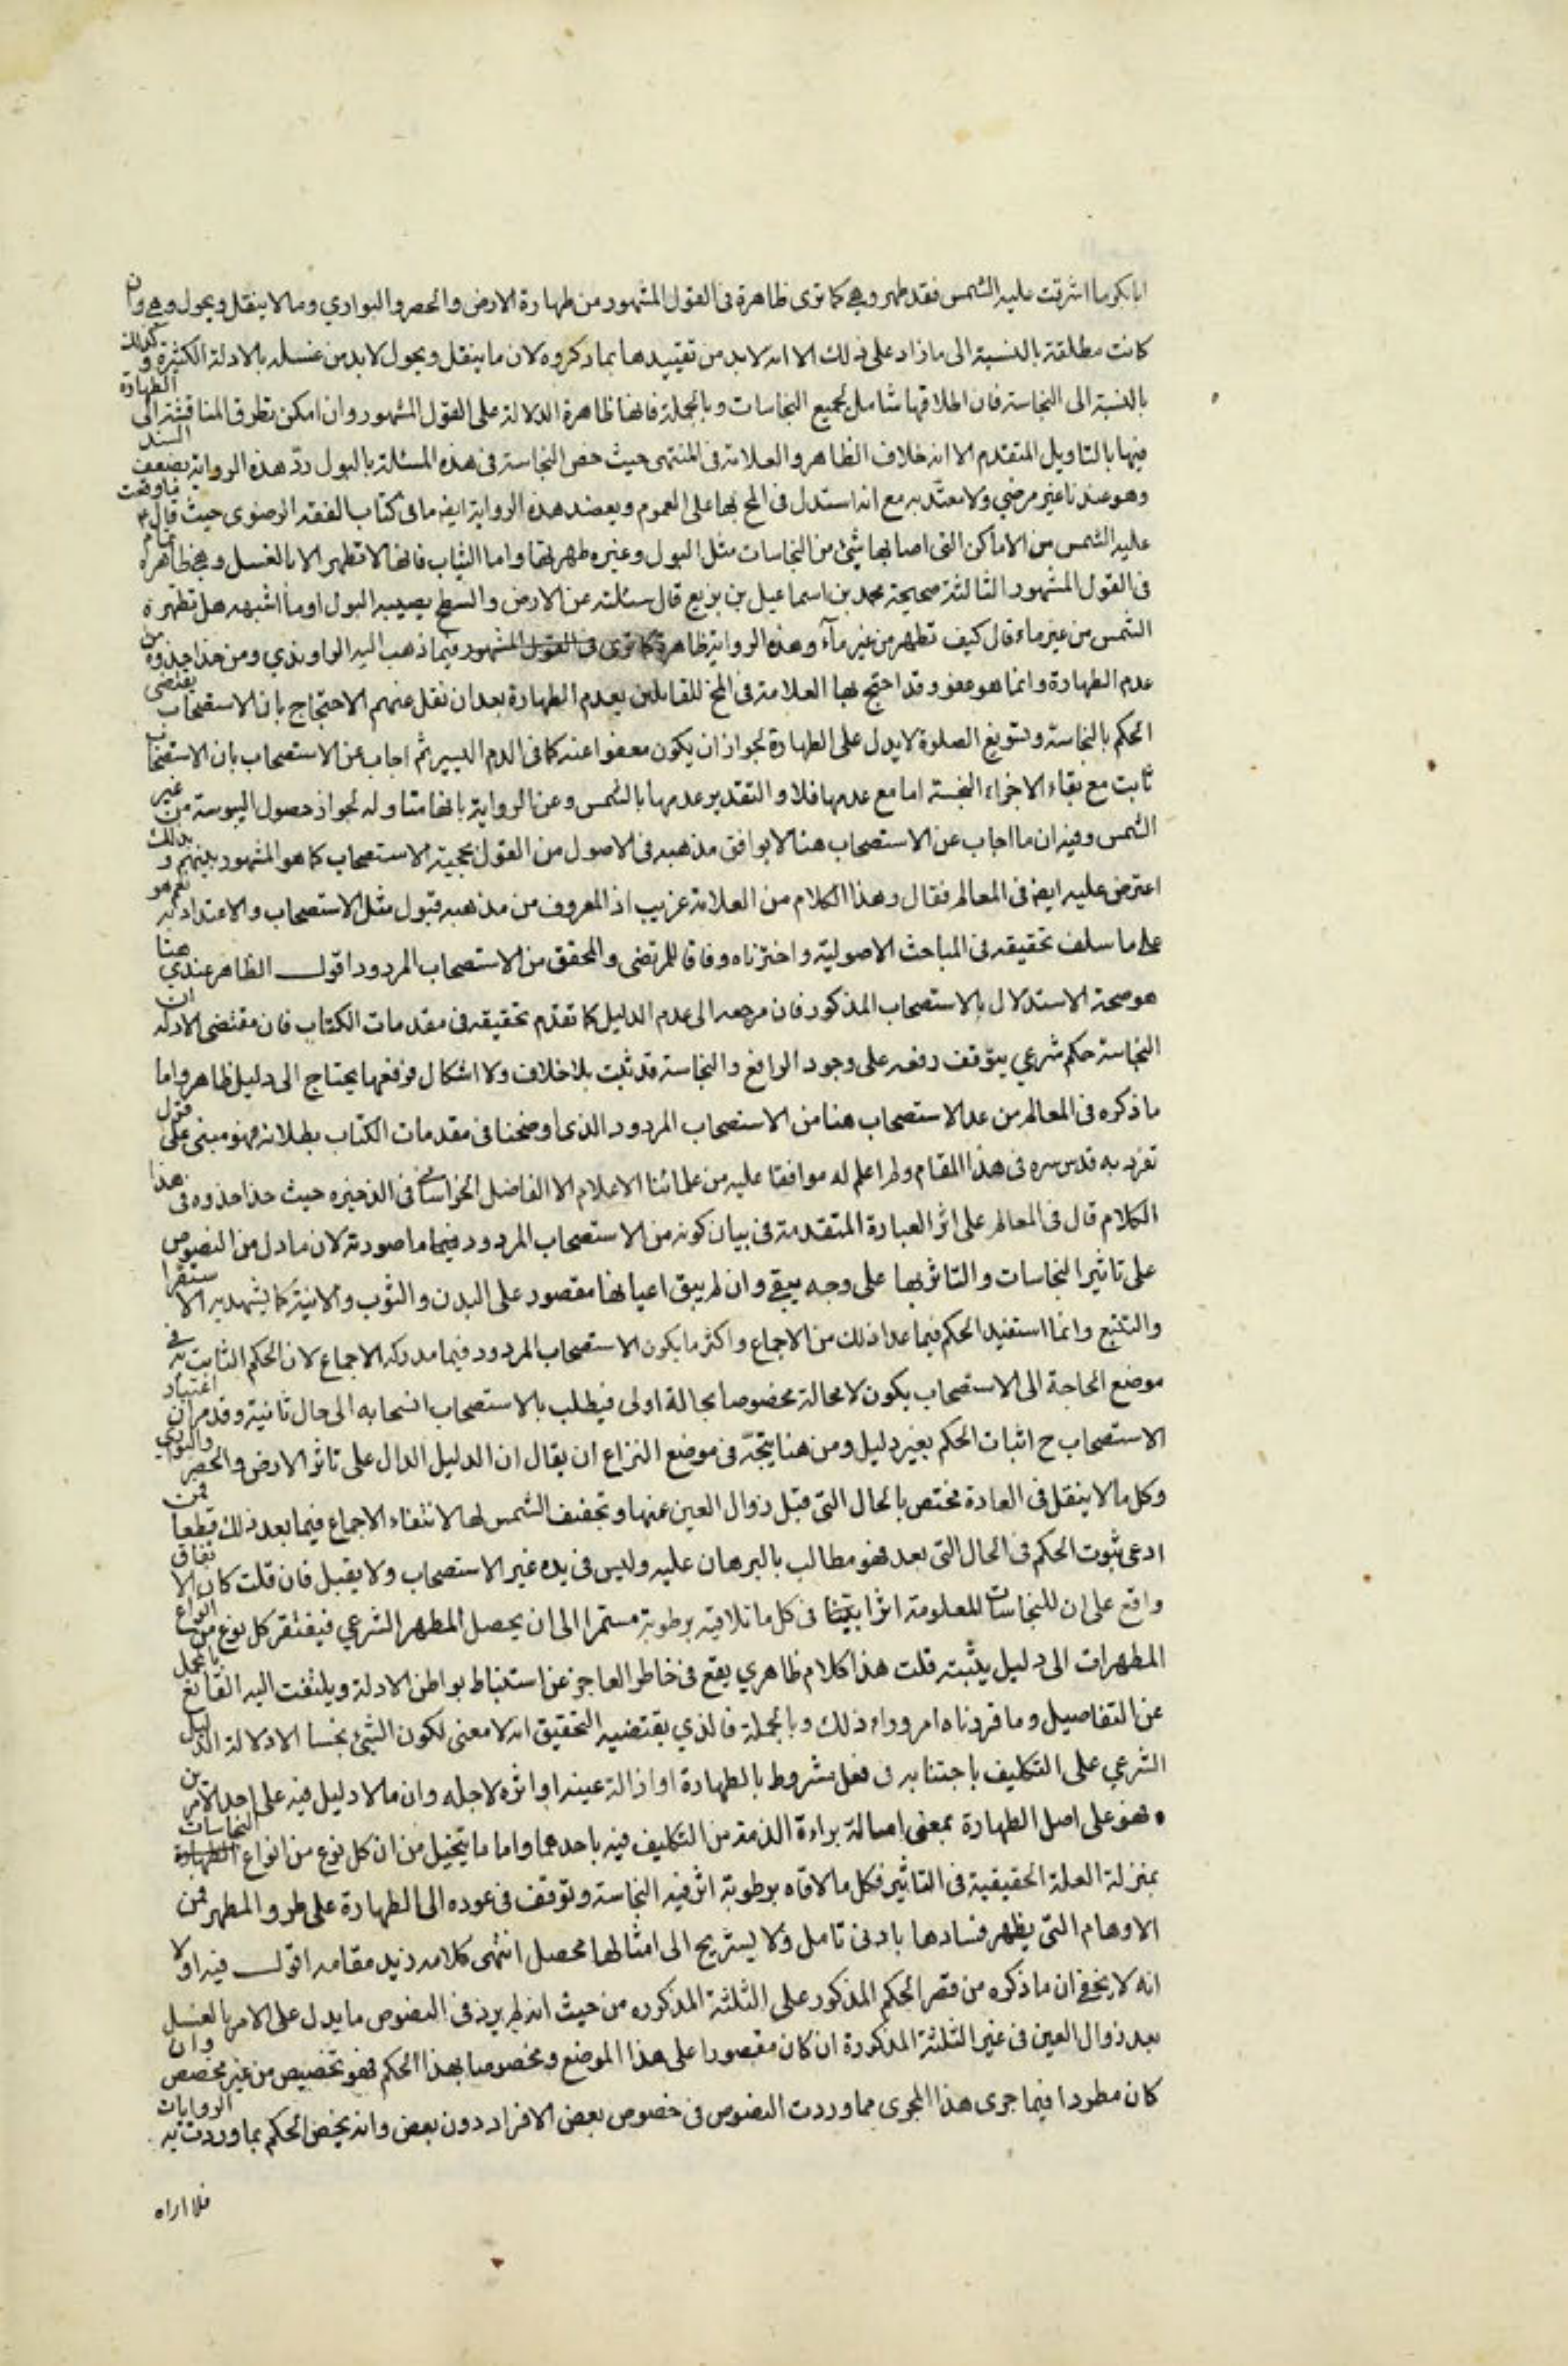 ابابكر ما اشرقت عليه الشمس فقد طهر وهي كما ترى ظاهرة في القول المشهور من طهارة الارض والحصر والبواري وما لا ينقل ويحول وهي وان
كانت مطلقة بالنسبة الى ما زاد على ذلك الا انه لا بد من تقييدها بما ذكروه لان ما ينقل ويحول لا بد من غسله بالادلة الكثيرة وكذلك
بالنسبة الى النجاسة فان اطلاقها شامل لجميع النجاسات وبالجملة فانها ظاهرة الدلالة على القول المشهور وان امكن تطرق المناقشة الى الطهارة
فيها بالتاويل المتقدم الا انه خلاف الظاهر والعلامة في المنتهى حيث خص النجاسة في هذه المسئلة بالبول رد هذه الرواية بضعف السند
وهو عندنا غير مرضي ولا معتد به مع انه استدل في المخ بها على العموم ويعضد هذه الرواية ايض ما في كتاب الفقه الرضوي حيث قال ع ما وقعت
عليه الشمس من الاماكن التي اصابها شئ من النجاسات مثل البول وغيره طهرتها واما الثياب فانها لا تطهر الا بالغسل وهي ظاهرة تمام
في القول المشهور الثالثة صحيحة محمد بن اسماعيل بن بزيع قال سئلته عن الارض والسطح يصيبه البول او ما اشبهه هل تطهره
الشمس من غير ماء قال كيف تطهر من غير مآء وهذه الرواية ظاهرة كما ترى في القول المشهور فيما ذهب اليه الراوندي ومن حذا حذوه من
عدم الطهارة وانما هو عفو وقد احتج بها العلامة في المخ للقايلين بعدم الطهارة بعد ان نقل عنهم الاحتجاج بان الاستصحاب يقتضي
الحكم بالنجاسة وتسويغ الصلوة لا يدل على الطهارة لجواز ان يكون معفوا عنه كما في الدم اليسير ثم اجاب عن الاستصحاب بان الاستصحاب
ثابت مع بقاء الاجزاء النجسة اما مع عدمها فلا والتقدير عدمها بالشمس وعن الرواية بانها متاولة لجواز حصول اليبوسة من غير
الشمس وفيه ان ما اجاب عن الاستصحاب هنا لا يوافق مذهبه في الاصول من القول بحجية الاستصحاب كما هو المشهور بينهم وبذلك
اعترض عليه ايض في المعالم فقال وهذا الكلام من العلامة غريب اذ المعروف من مذهبه قبول مثل الاستصحاب والاعتداد به نعم هو
على ما سلف تحقيقه في المباحث الاصولية واخترناه وفاقا للمرتضى والمحقق من الاستصحاب المردود اقول الظاهر عندي هنا
هو صحة الاستدلال بالاستصحاب المذكور فان مرجعه الى عدم الدليل كما تقدم تحقيقه في مقدمات الكتاب فان مقتضى الادلة ان
النجاسة حكم شرعي يتوقف رفعه على وجود الرافع والنجاسة قد ثبت بلا خلاف ولا اشكال فرفعها يحتاج الى دليل ظاهر واما
ما ذكره في المعالم من عد الاستصحاب هنا من الاستصحاب المردود الذي اوضحنا في مقدمات الكتاب بطلانه فهو مبني على قول
تفرد به قدس سره في هذا المقام ولم اعلم له موافقا عليه من علمائنا الاعلام الا الفاضل الخراساني في الذخيرة حيث حذا حذوه في هذا
الكلام قال في المعالم على اثر العبارة المتقدمة في بيان كونه من الاستصحاب المردود فيما ما صورته لان ما دل من النصوص
على تاثير النجاسات والتاثر بها على وجه يبقى وان لم يبق اعيانها مقصور على البدن والثوب والانية كما يشهد به الاستقرا
والتتبع وانما استفيد الحكم فيما عدا ذلك من الاجماع واكثر ما يكون الاستصحاب المردود فيما مدركه الاجماع لان الحكم الثابت به في
موضع الحاجة الى الاستصحاب يكون لا محالة مخصوصا بحالة اولى فيطلب بالاستصحاب انسحابه الى حال ثانية وقد مر ان اعتبار
الاستصحاب ح اثبات الحكم بغير دليل ومن هنا يتجه في موضع النزاع ان يقال ان الدليل الدال على تاثر الارض والحصر والبواري
وكل ما لا ينقل في العادة مختص بالحال التي قبل زوال العين عنها وتجفيف الشمس لها لانتفاء الاجماع فيما بعد ذلك قطعا فمن
ادعى ثبوت الحكم في الحال التي بعد فهو مطالب بالبرهان عليه وليس في يده غير الاستصحاب ولا يقبل فان قلت كان الاتفاق
واقع على ان للنجاسات المعلومة اثرا بيّنا في كل ما تلاقيه برطوبة مستمرا الى ان يحصل المطهر الشرعي فيفتقر كل نوع من انواع
المطهرات الى دليل يثبته قلت هذا كلام ظاهري يقع في خاطر العاجز عن استنباط بواطن الادلة ويلتفت اليه القانع بالمجمل
عن التفاصيل وما قررناه امر وراء ذلك وبالجملة فالذي يقتضيه التحقيق انه لا معنى لكون الشئ نجسا الا دلالة الدليل
الشرعي على التكليف باجتنابه في فعل مشروط بالطهارة او ازالة عينه او اثره لاجله وان ما لا دليل فيه على احد الامرين
فهو على اصل الطهارة بمعنى اصالة براءة الذمة من التكليف فيه باحدهما واما ما يتخيل من ان كل نوع من انواع الطهارة النجاسات
بمنزلة العلة الحقيقية في التاثير فكل ما لاقاه برطوبة اثر فيه النجاسة وتوقف في عوده الى الطهارة على طرو المطهر فمن
الاوهام التي يظهر فسادها بادنى تامل ولا يستريح الى امثالها محصل انتهى كلامه زيد مقامه اقول فيه اولا
انه لا يخفى ان ما ذكره من قصر الحكم المذكور على الثلثة المذكورة من حيث انه لم يرد في النصوص ما يدل على الامر بالغسل
بعد زوال العين في غير الثلثة المذكورة ان كان مقصورا على هذا الموضع ومخصوصا بهذا الحكم فهو تخصيص من غير مخصص وان
كان مطردا فيما جرى هذا المجرى مما وردت النصوص في خصوص بعض الافراد دون بعض وانه يختص الحكم بما وردت به الروايات
فلا اراه